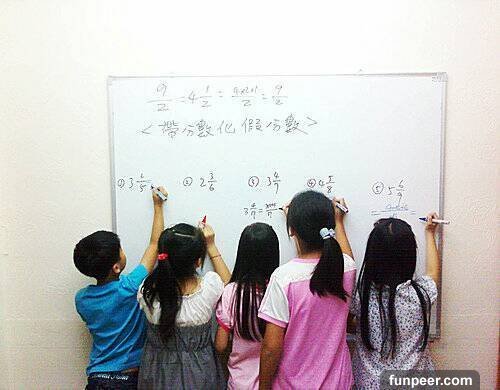 9/2 = 4 1/2 = 4×2+1/2 = 9/2
<帶分數化假分數>
② 2 3/6 ③ 3 4/7 ④ 4 5/8 ⑤ 5 6/9
3 4/7 =
funpeer.com